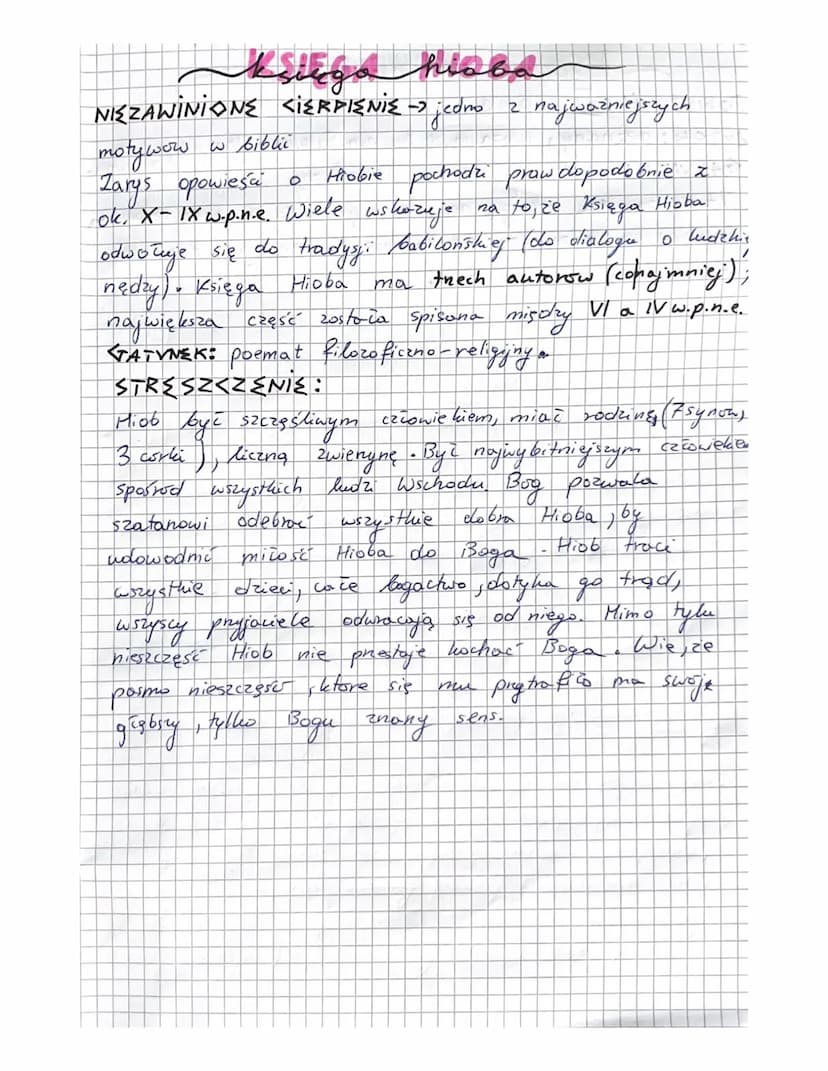 KSIĘGA HIOBA
Księga hioba
NIEZAWINIONE CIERPIENIE → jedno z najważniejszych
motywów w biblii
Zarys opowieści o Hiobie pochodzi prawdopodobnie z
ok. X-IX w.p.n.e. Wiele wskazuje na to, że Księga Hioba
odwołuje się do tradysji babilońskiej (do dialogu o ludzkiej
nędzy). Księga Hioba ma trzech autorów (conajmniej);
największa część została spisana między VI a IV w.p.n.e.
GATUNEK: poemat filozoficzno-religijny.
STRESZCZENIE:
Hiob był szczęśliwym człowiekiem, miał rodzinę (7 synów,
3 córki), liczną zwierzynę. Był najwybitniejszym człowiekiem
spośród wszystkich ludzi Wschodu. Bóg pozwala
szatanowi odebrać wszystkie dobra Hioba, by
udowodnić miłość Hioba do Boga. Hiob traci
wszystkie dzieci, całe bogactwo, dotyka go trąd,
wszyscy przyjaciele odwracają się od niego. Mimo tylu
nieszczęść Hiob nie przestaje kochać Boga. Wie, że
pasmo nieszczęść, które się mu przytrafiło ma swój
głębszy, tylko Bogu znany sens.